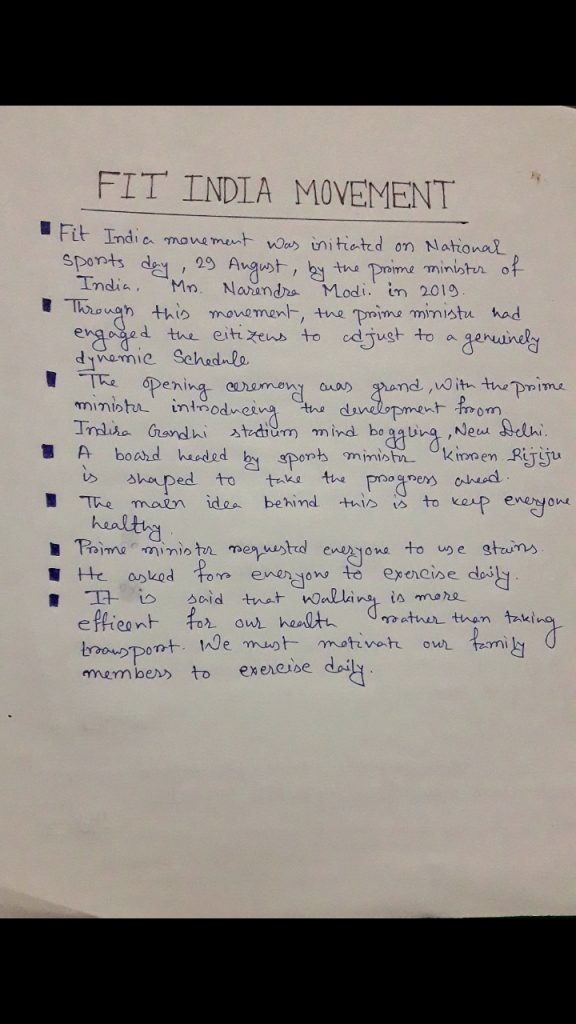 FIT INDIA MOVEMENT
Fit India movement was initiated on National
sports day, 29 August, by the prime minister of
India. Mr. Narendra Modi. in 2019.
Through this movement, the prime minister had
engaged the citizens to adjust to a genuinely
dynamic Schedule
The opening ceremony was grand, with the prime
minister introducing the development from
Indira Gandhi stadium mind boggling, New Delhi.
A board headed by sports minister Kirren Rijiju
is shaped to take the progress ahead.
The main idea behind this is to keep everyone
healthy.
Prime minister requested everyone to use stairs.
He asked for everyone to exercise daily.
It is said that walking is more
efficent for our health rather than taking
transport. We must motivate our family
members to exercise daily.